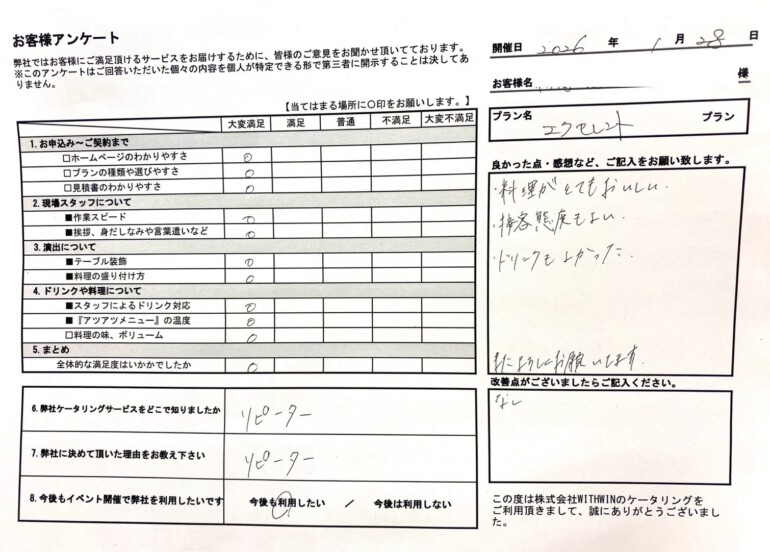 お客様アンケート
弊社ではお客様にご満足頂けるサービスをお届けするために、皆様のご意見をお聞かせ頂いております。
※このアンケートはご回答いただいた個々の内容を個人が特定できる形で第三者に開示することは決してあ
りません。
開催日 2026 年 1 月 28 日
お客様名 様
プラン名 エクセレント プラン
【当てはまる場所に〇印をお願いします。】
大変満足 満足 普通 不満足 大変不満足
1. お申込み～ご契約まで
□ホームページのわかりやすさ ○
□プランの種類や選びやすさ ○
□見積書のわかりやすさ ○
2. 現場スタッフについて
■作業スピード ○
■挨拶、身だしなみや言葉遣いなど ○
3. 演出について
■テーブル装飾 ○
■料理の盛り付け方 ○
4. ドリンクや料理について
■スタッフによるドリンク対応 ○
■『アツアツメニュー』の温度 ○
□料理の味、ボリューム ○
5. まとめ
全体的な満足度はいかかでしたか ○
6. 弊社ケータリングサービスをどこで知りましたか リピーター
7. 弊社に決めて頂いた理由をお教え下さい リピーター
8. 今後もイベント開催で弊社を利用したいです 今後も利用したい / 今後は利用しない
良かった点・感想など、ご記入をお願い致します。
・料理がとてもおいしい.
・接客態度もよい.
・ドリンクもよかった.
お願いします.
改善点がございましたらご記入ください。
なし
この度は株式会社WITHWINのケータリングを
ご利用頂きまして、誠にありがとうございまし
た。